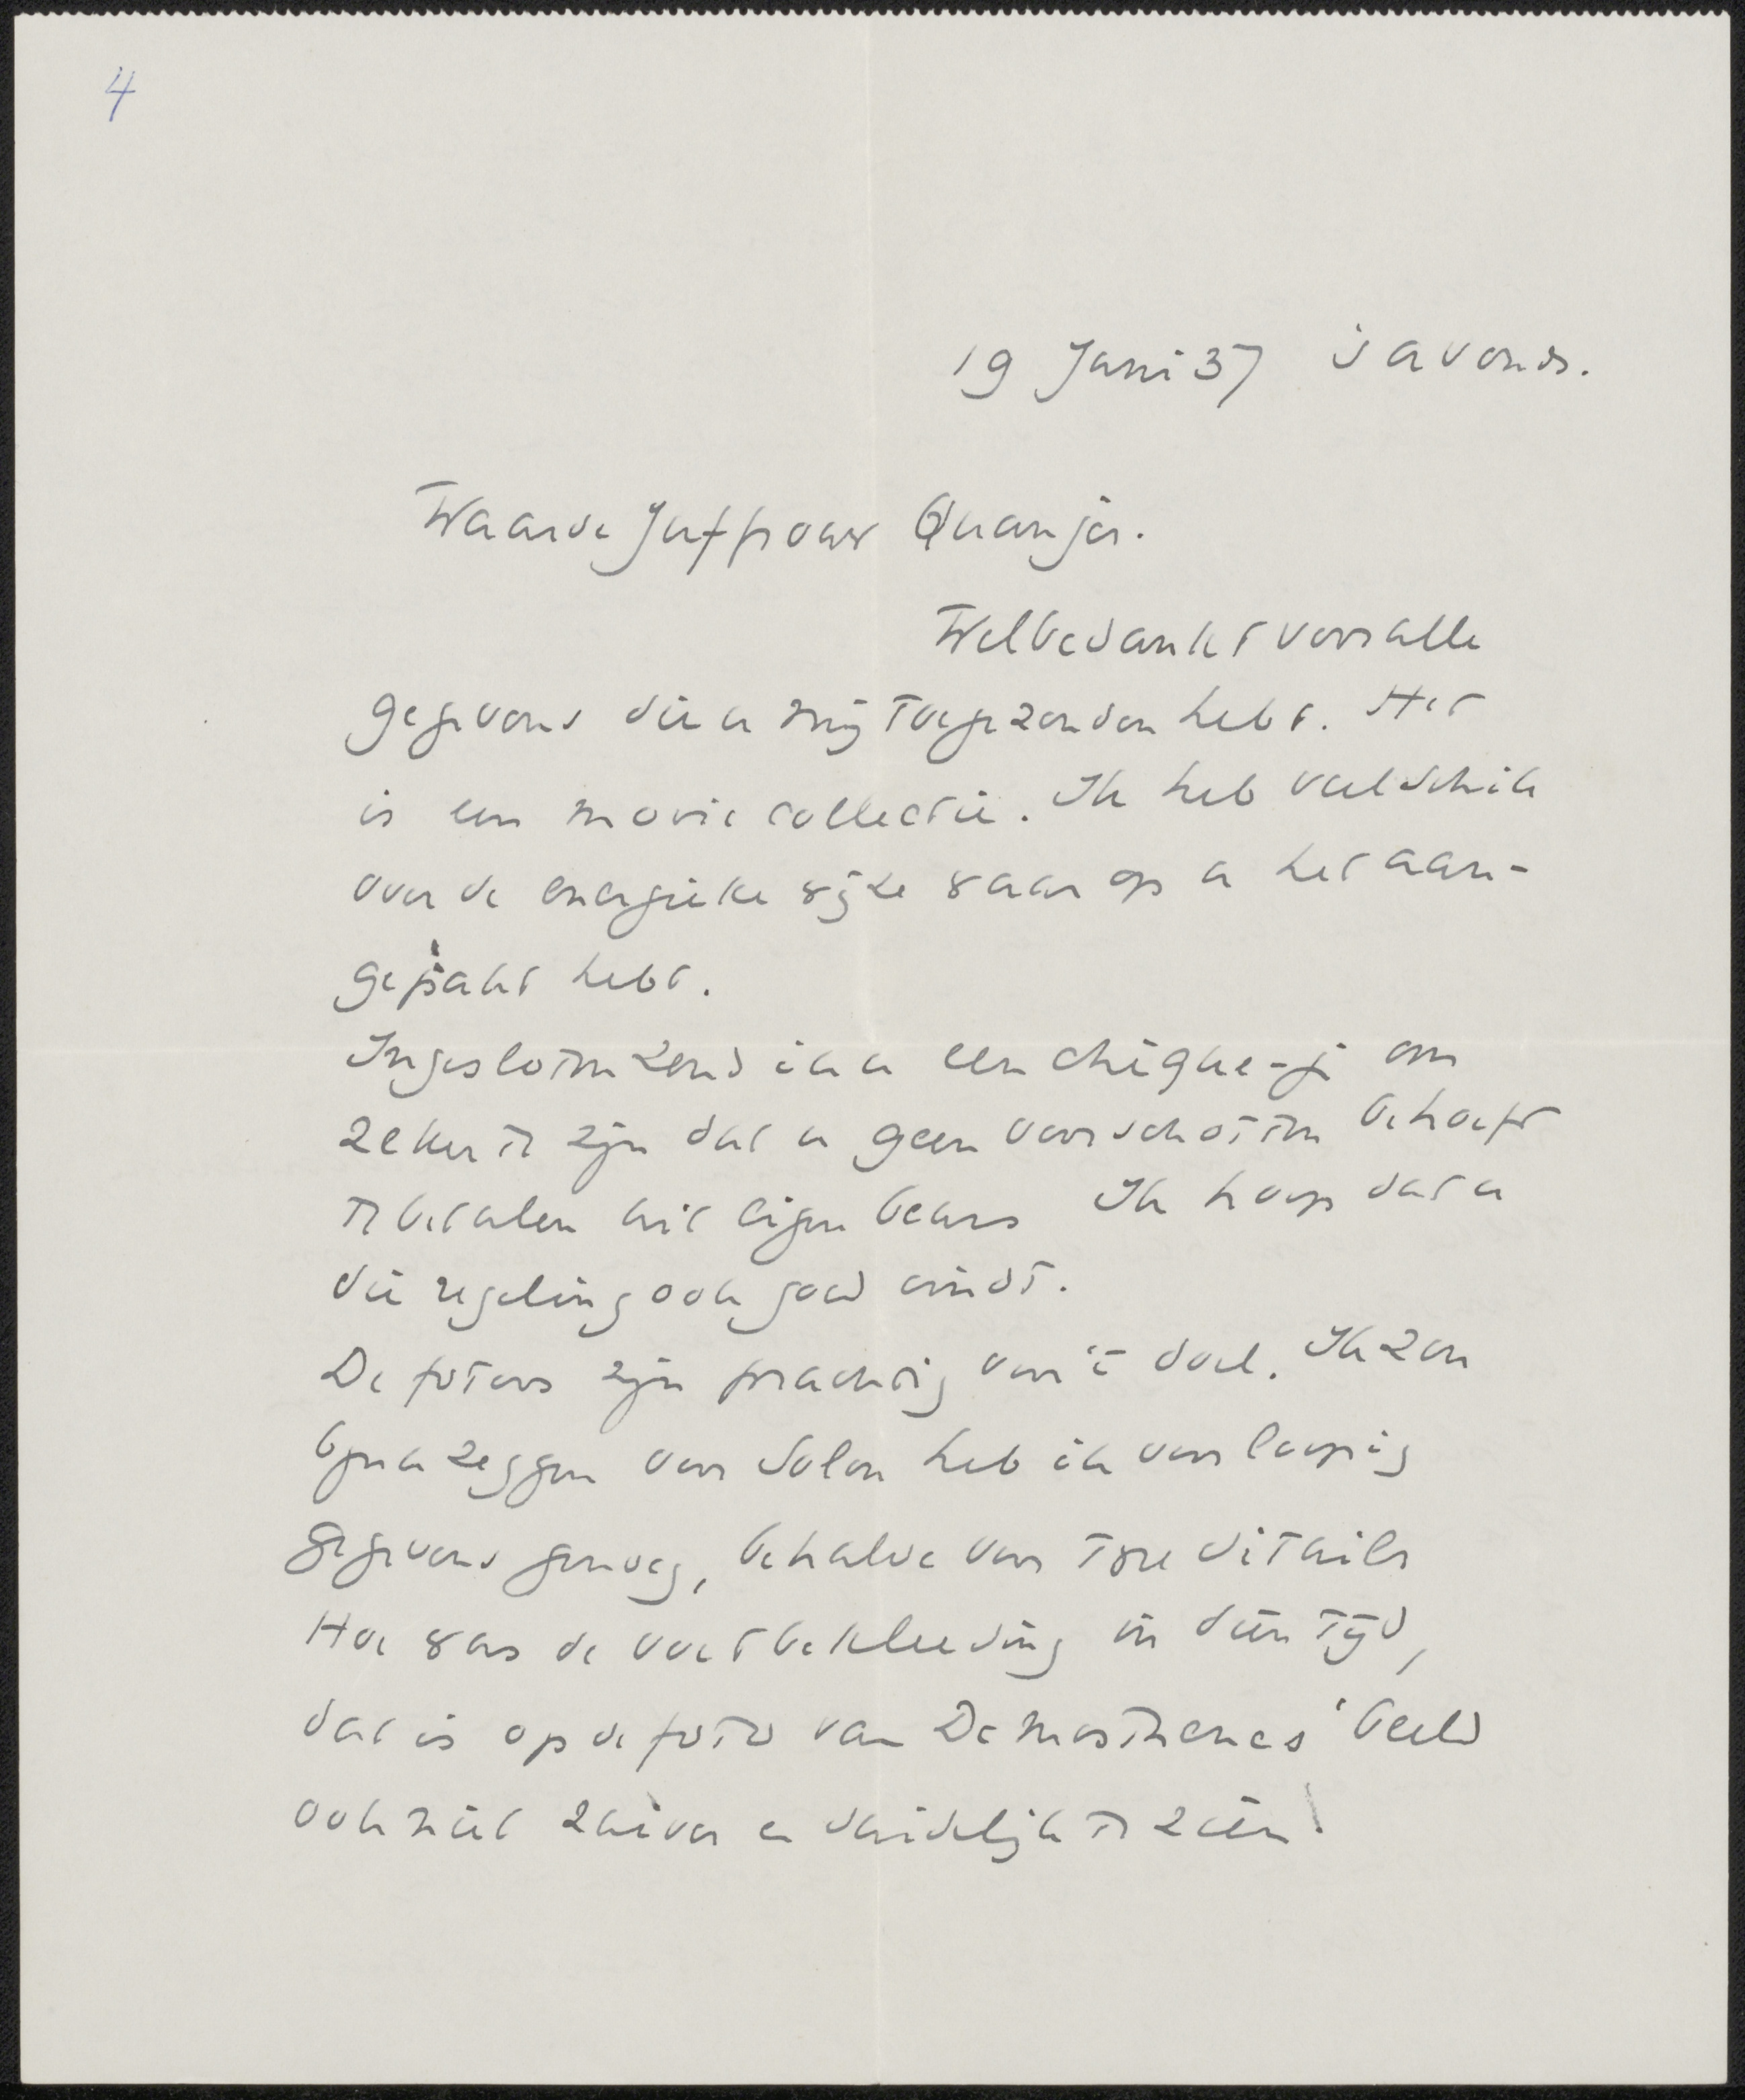 4
19 Juni 37 's avonds.
Waarde Juffrouw Quanjer.
Wel bedankt voor alle
gegevens die u mij toegezonden hebt. Het
is een mooie collectie. Ik heb veel schik
over de energieke wijze waar op u het aan-
gepakt hebt.
Ingesloten zend ik u een chèque-je om
zeker te zijn dat u geen voorschotten behoeft
te betalen uit eigen beurs Ik hoop dat u
die regeling ook goed vindt.
De foto's zijn prachtig voor 't doel. Ik zou
bijna zeggen voor Solon heb ik voorloopig
gegevens genoeg, behalve voor twee details
Hoe was de voetbekleeding in dien tijd,
dat is op de foto van Demosthenes' beeld
ook niet zuiver en duidelijk te zien!